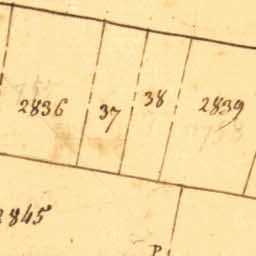 2836 37 38 2839
2845
P.